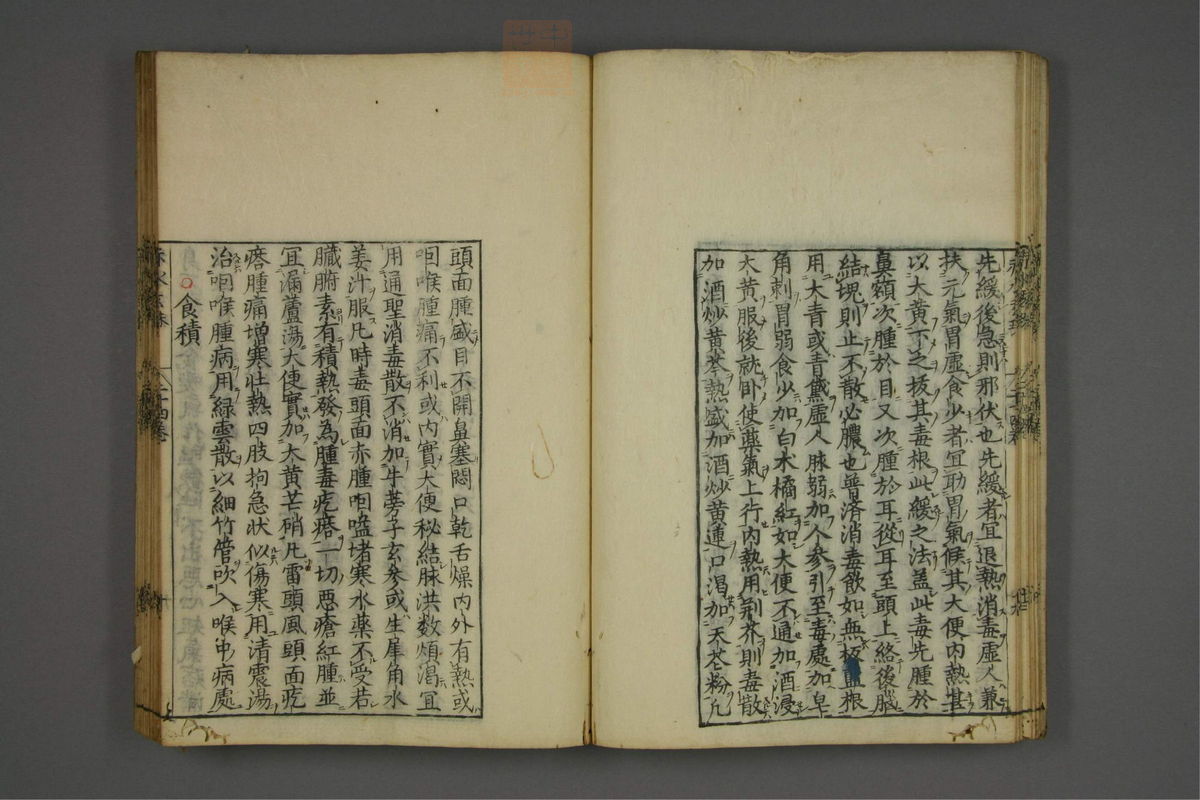 先緩後急則邪伏也先緩者宜退熱消毒虛人兼
扶元氣胃虛食少者宜助胃氣候其大便內熱甚
以大黃下之拔其毒根此緩之法盖此毒先腫於
鼻頞次腫於目又次腫於耳從耳至頭上絡後腦
結塊則止不散必膿也普濟消毒飲如無板藍根
用大青或青黛虛人脉弱加人參引至毒處加皂
角刺胃弱食少加白朮橘紅如大便不通加酒浸
大黃服後就卧使藥氣上行內熱用荆芥則毒散
加酒炒黄芩熱盛加酒炒黄連口渴加天花粉凢
頭面腫盛目不開鼻塞悶口乾舌燥内外有熱或
咽喉腫痛不利或内實大便秘結脉洪数煩渴宜
用通聖消毒散不消加牛蒡子玄参或生犀角水
姜汁服凢時毒頭面赤腫咽嗌堵寒水藥不受若
臓腑素有積熱發為腫毒疙瘩一切悪瘡紅腫並
宜漏蘆湯大便實加大黄芒硝凢雷頭風頭面疙
瘩腫痛增寒壮熱四肢拘急状似傷寒用清震湯
治咽喉腫病用緑雲散以細竹管吹入喉中病處
○食積